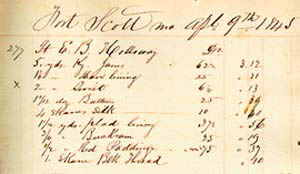 Fort Scott Mo Apl 9th 1845
277 Lt E. B. Holloway Dr
5 yds Ky. Jeans 62 3.12
lining 25 .31
x 2 62 .13
1½ dz Buttons 25
4 Skeins Silk 10 .40
1½ yds plad lining 37½ .56
Buckram 25 .19
Red Padding 75 .37
1 Skein Blk Thread .10